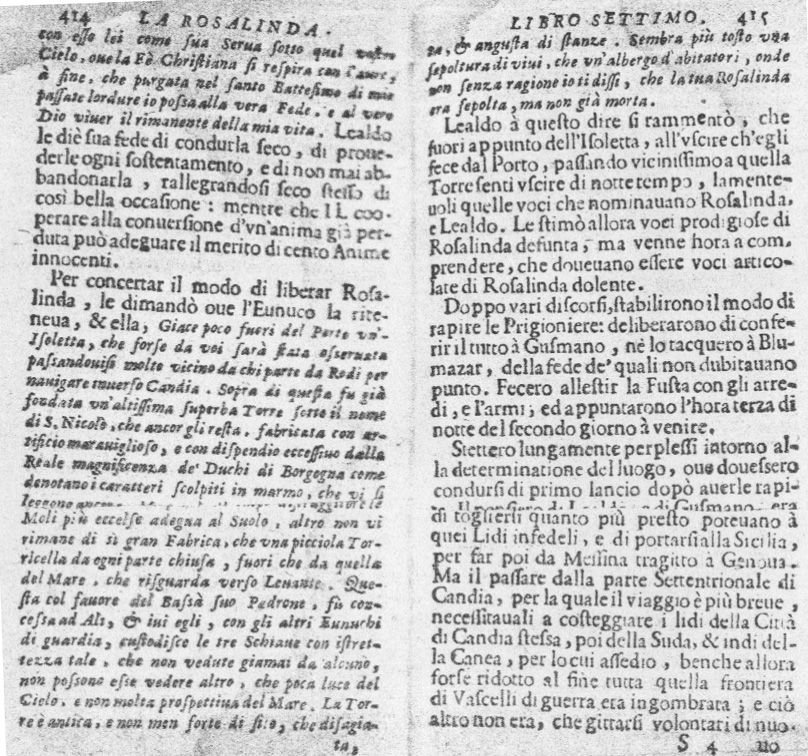 414 LA ROSALINDA.
con esso lei come sua Serua sotto quel vostro
Cielo, oue la Fè Christiana si respira con l'aure,
à fine, che purgata nel santo Battesimo di mie
passate lordure io possa alla vera Fede, e al vero
Dio viuer il rimanente della mia vita. Lealdo
le diè sua fede di condurla seco, di proue-
derle ogni sostentamento, e di non mai ab-
bandonarla, rallegrandosi seco stesso di
così bella occasione: mentre che IL coo-
perare alla conuersione d'vn'anima già per-
duta può adeguare il merito di cento Anime
innocenti.
Per concertar il modo di liberar Rosa-
linda, le dimandò oue l'Eunuco la rite-
neua, & ella, Giace poco fuori del Porto vn'-
Isoletta, che forse da voi sarà stata osseruata
passandouisi molto vicino da chi parte da Rodi per
nauigare inuerso Candia. Sopra di questa fu già
fondata vn'altissima superba Torre sotto il nome
di S. Nicolò, che ancor gli resta, fabricata con ar-
tificio marauiglioso, e con dispendio eccessiuo dalla
Reale magnificenza de' Duchi di Borgogna come
denotano i caratteri scolpiti in marmo, che vi si
leggono ancora.
Moli più eccelse adegua al Suolo, altro non vi
rimane di sì gran Fabrica, che vna picciola Tor-
ricella da ogni parte chiusa, fuori che da quella
del Mare, che risguarda verso Leuante. Que-
sta col fauore del Bassà suo Padrone, fù con-
cessa ad Alì, & iui egli, con gli altri Eunuchi
di guardia, custodisce le tre Schiaue con istret-
tezza tale, che non vedute giamai da alcuno,
non possono esse vedere altro, che poca luce del
Cielo, e non molta prospettiua del Mare. La Tor-
re è antica, e non men forte di sito, che disagia-
ta,
LIBRO SETTIMO. 415
ta, & angusta di stanze. Sembra più tosto vna
sepoltura di viui, che vn'albergo d'abitatori, onde
non senza ragione io ti dissi, che la tua Rosalinda
era sepolta, ma non già morta.
Lealdo à questo dire si rammentò, che
fuori appunto dell'Isoletta, all'vscire ch'egli
fece dal Porto, passando vicinissimo a quella
Torre sentì vscire di notte tempo, lamente-
uoli quelle voci che nominauano Rosalinda,
e Lealdo. Le stimò allora voci prodigiose di
Rosalinda defunta, ma venne hora a com-
prendere, che doueuano essere voci artico-
late di Rosalinda dolente.
Doppo vari discorsi, stabilirono il modo di
rapire le Prigioniere: deliberarono di confe-
rir il tutto à Gusmano, nè lo tacquero à Blu-
mazar, della fede de' quali non dubitauano
punto. Fecero allestir la Fusta con gli arre-
di, e l'armi; ed appuntarono l'hora terza di
notte del secondo giorno à venire.
Stettero lungamente perplessi intorno al-
la determinatione del luogo, oue douessero
condursi di primo lancio dopò auerle rapi-
di toglierli quanto più presto poteuano à
quei Lidi infedeli, e di portarsi alla Sicilia,
per far poi da Messina tragitto à Genoua.
Ma il passare dalla parte Settentrionale di
Candia, per la quale il viaggio è più breue,
necessitauali a costeggiare i lidi della Città
di Candia stessa, poi della Suda, & indi del-
la Canea, per lo cui assedio, benche allora
forse ridotto al fine tutta quella frontiera
di Vascelli di guerra era ingombrata; e ciò
altro non era, che gittarsi volontari di nuo-
S 4 uo